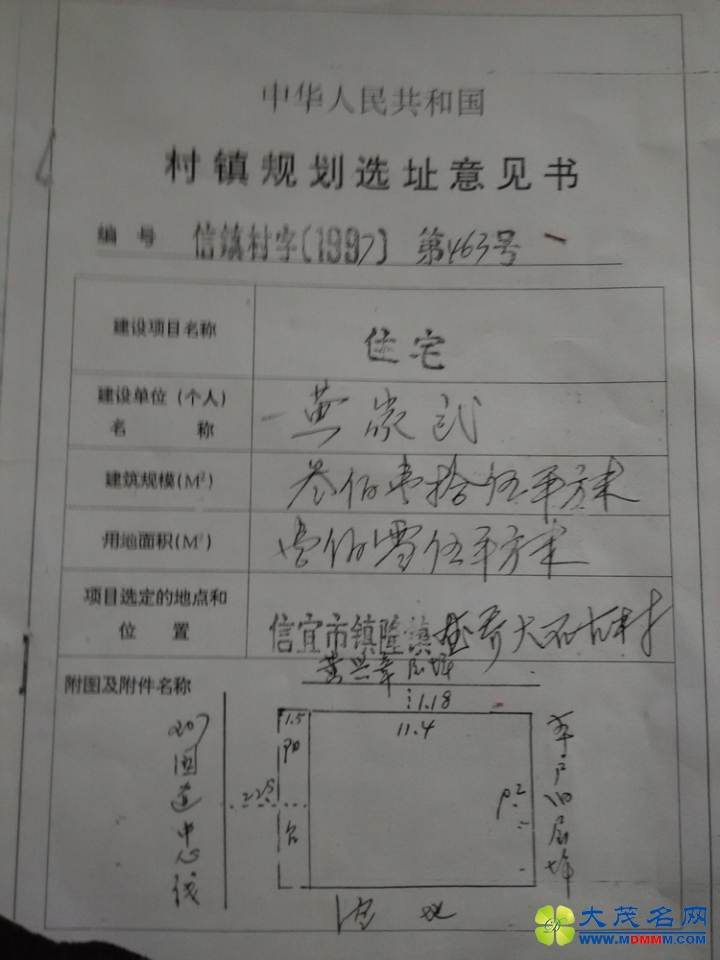 中华人民共和国
村镇规划选址意见书
编号 信镇村字(1997) 第463号
建设项目名称 住宅
建设单位(个人)
名称 黄家
建筑规模(M²) 叁佰壹拾伍平方米
用地面积(M²) 壹佰零伍平方米
项目选定的地点和
位置 信宜市镇隆镇 大石古村
附图及附件名称 黄兴章屋
1.18
1.5 11.4
阳台
207国道中心线
本户旧屋
大茂名网
www.MDMMM.com